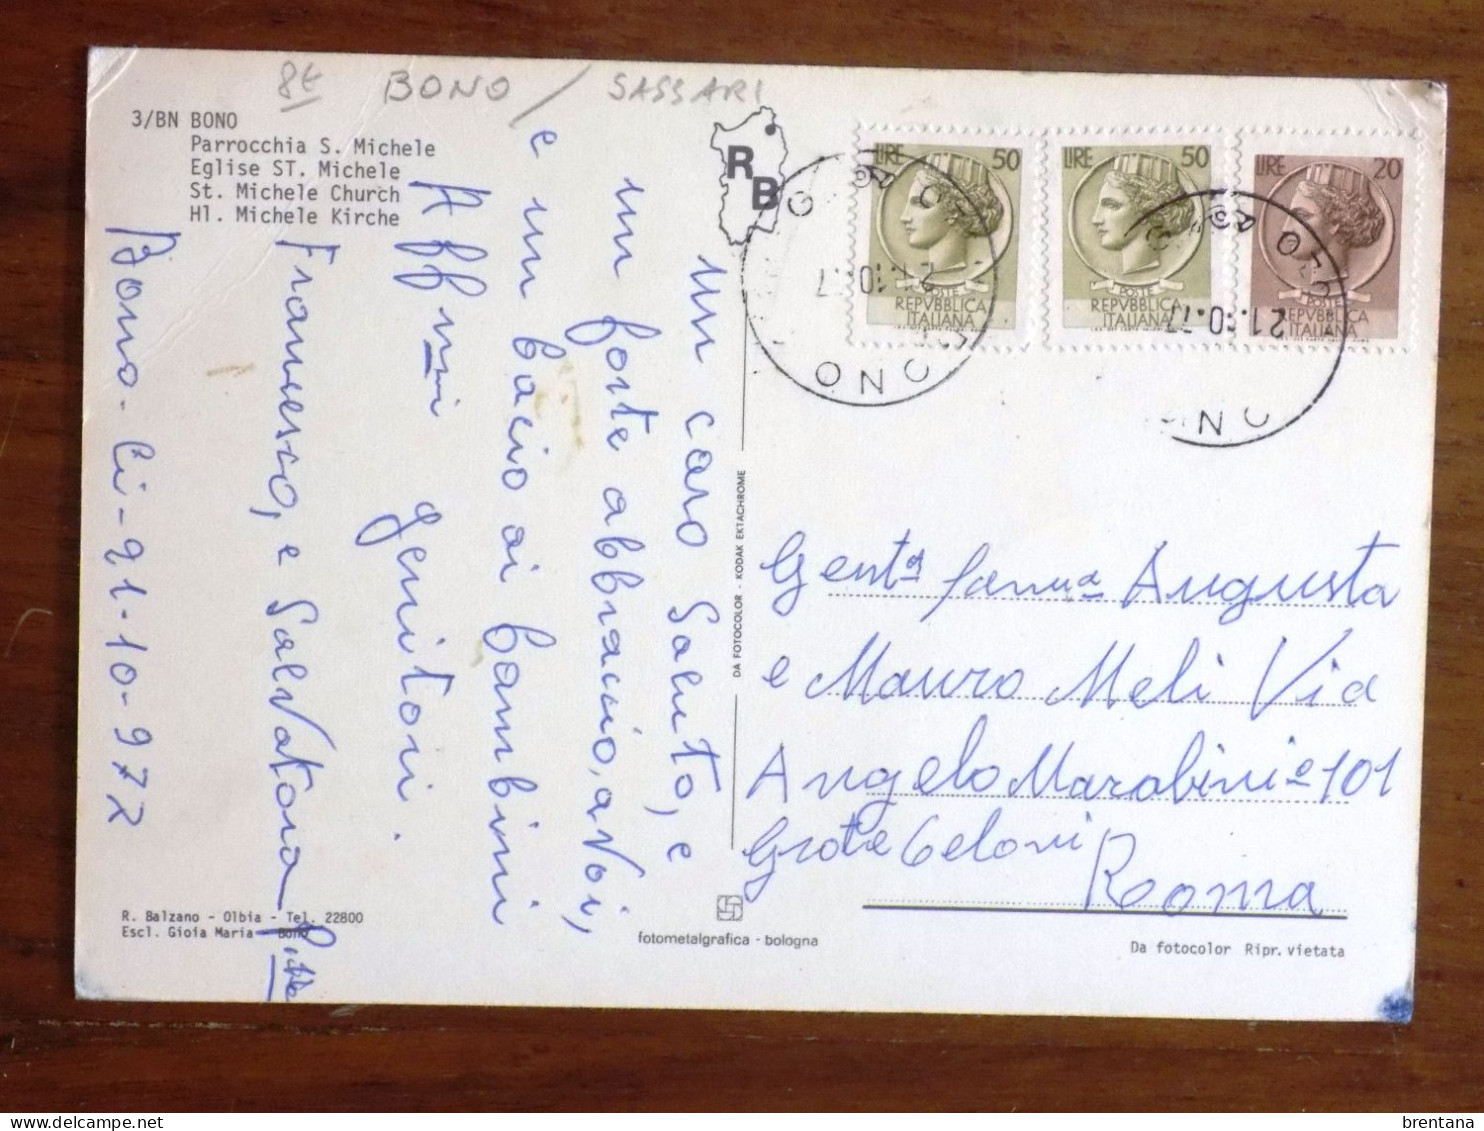 8€ BONO / SASSARI
3/BN BONO
Parrocchia S. Michele
Eglise ST. Michele
St. Michele Church
Hl. Michele Kirche
RB
LIRE 50
POSTE
REPVBBLICA
ITALIANA
LIRE 50
POSTE
REPVBBLICA
ITALIANA
LIRE 20
POSTE
REPVBBLICA
ITALIANA
21.10.77
21.10.77
un caro Saluto, e
un forte abbraccio, a Voi,
e un bacio ai bambini
Aff.mi genitori.
Francesco, e Salvatora
Bono. Li-21-10-972
DA FOTOCOLOR - KODAK EKTACHROME
Gent.a Fam.a Augusta
e Mauro Meli Via
Angelo Marabini 101
Grote Celoni
Roma
R. Balzano - Olbia - Tel. 22800
Escl. Gioia Maria - Bono
fotometalgrafica - bologna
Da fotocolor Ripr. vietata
brentana